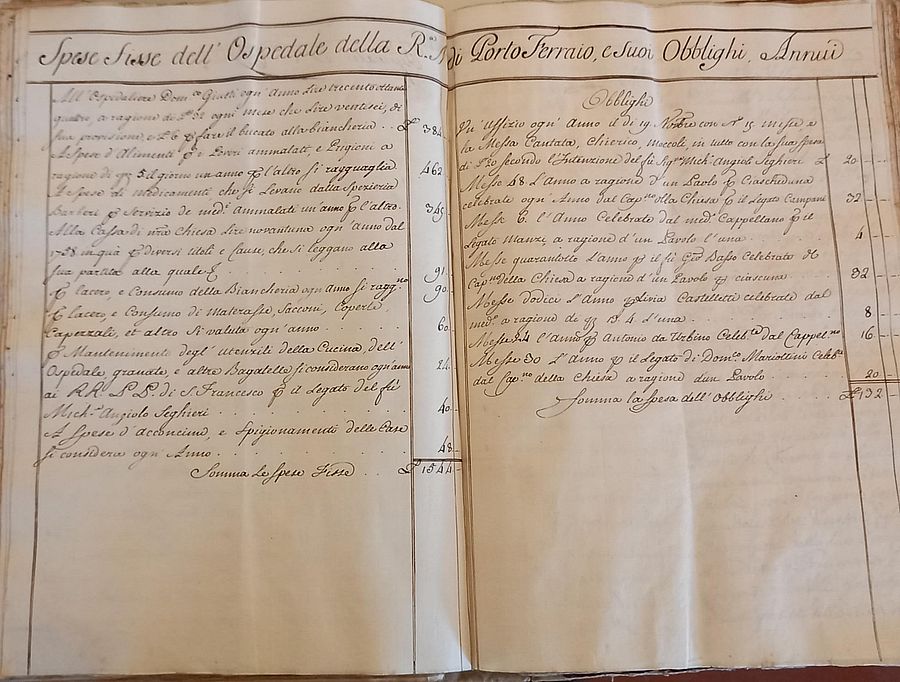 Spese Fisse dell' Ospedale della R.a di Porto Ferraio, e suoi Obblighi Annui
All' Ospedaliere Dom.co Giusti ogn' anno lire trecento ottanta
quattro, a ragione di 32 ogni mese che lire ventisei, di
sua provisione, e 6 fare il bucato alla biancheria 384
A Spese d'Alimenti e Poveri ammalati e Prigioni a
ragione di 5 il giorno un anno l'altro si ragguaglia 462
A Spese di medicamenti che si Levano dalla Spezieria
Barberi Servizio de med.i ammalati un' anno l'altro 345
Alla Cassa di nra Chiesa Lire novantuna ogni anno dal
1758 in quà diversi titoli e Cause, che si leggano alla
sua partita alla quale 91
lacero, e Consumo della Biancheria ogn' anno si ragg.no 90
lacero, e Consumo di Materasse, Sacconi, Coperte,
Capezzali, et altro si valuta ogn' anno 60
Mantenimento degl' utensili della Cucina dell'
Ospedale, granate, e altre Bagatelle si considerano ogn' anno 24
ai RR. PP. di S. Francesco il Legato del fù
Mich.e Angiolo Seghieri 40
A Spese d'acconcimo, e Spigionamenti delle Case
si considera ogn' Anno 48
Somma le Spese Fisse £ 1544
Obblighi
Un' Uffizio ogn' Anno il dì 19 Novbre con N.o 15 messe e
la Messa Cantata, Chierico, moccoli, in tutto con la sua spesa
di 20 secondo l'Intenzione del fù Sig.re Mich. Angioli Seghieri £ 20
Messe 48 l'Anno a ragione d'un Paolo Ciascheduna
celebrate ogn' Anno dal Cap.no della Chiesa il Legato Campani 32
Messe 6 l'Anno Celebrate dal med.o Cappellano il
Legato Manzi a ragione d'un Pavolo l'una 4
Messe quarantotto l'anno il fù Gio Basso Celebrate dal
Cap.no della Chiesa a ragione d'un Pavolo ciascuna 32
Messe dodici l'Anno Livia Castelletti celebrate dal
med.o a ragione de 13.4 l'una 8
Messe 24 l'anno Antonio da Urbino Celeb.te dal Cappel.no 16
Messe 30 l'Anno il Legato di Dom.co Mariottini Celeb.te
dal Cap.no della Chiesa a ragione d'un Pavolo 20
Somma la Spesa dell' Obblighi £ 132